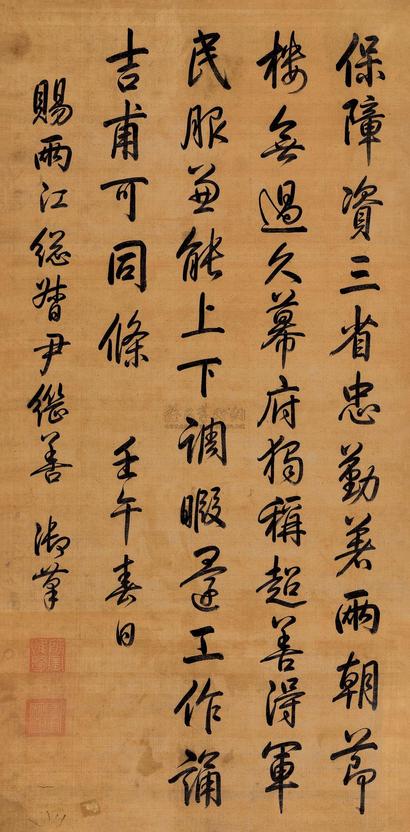 保障資三省忠勤著兩朝節
樓無過久幕府獨稱超善得軍
民服兼能上下調暇還工作誦
吉甫可同條 壬午春日
賜兩江總督尹繼善 御筆